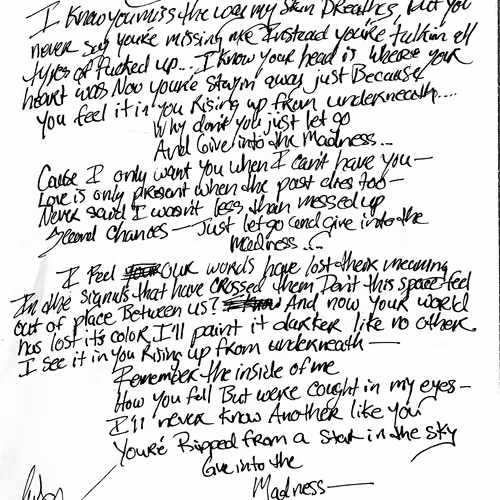 I know you miss the way my skin breathes, but you
never say you're missing me Instead you're talkin all
types of fucked up... I know your head is where your
heart was Now you're stayin away just Because
you feel it in you Rising up from underneath....
Why don't you just let go
And Give into the Madness...
Cause I only want you when I can't have you—
Love is only present when the past dies too—
Never said I wasn't less than messed up
Second Chances — Just let go and give into the
Madness...
I Feel our words have lost their meaning
In the signals that have crossed them Don't this space feel
out of place Between us? And now your world
has lost it's color I'll paint it darker like no other
I see it in you Rising up from underneath—
Remember the inside of me
How you fall But we're caught in my eyes—
I'll never know Another like you
You're Ripped from a star in the sky
Give into the
Madness—